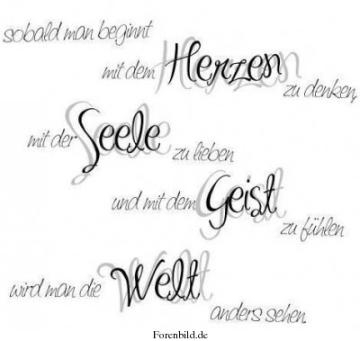 sobald man beginnt
mit dem Herzen
zu denken,
mit der Seele zu lieben
und mit dem Geist
zu fühlen
wird man die Welt
anders sehen.
Forenbild.de